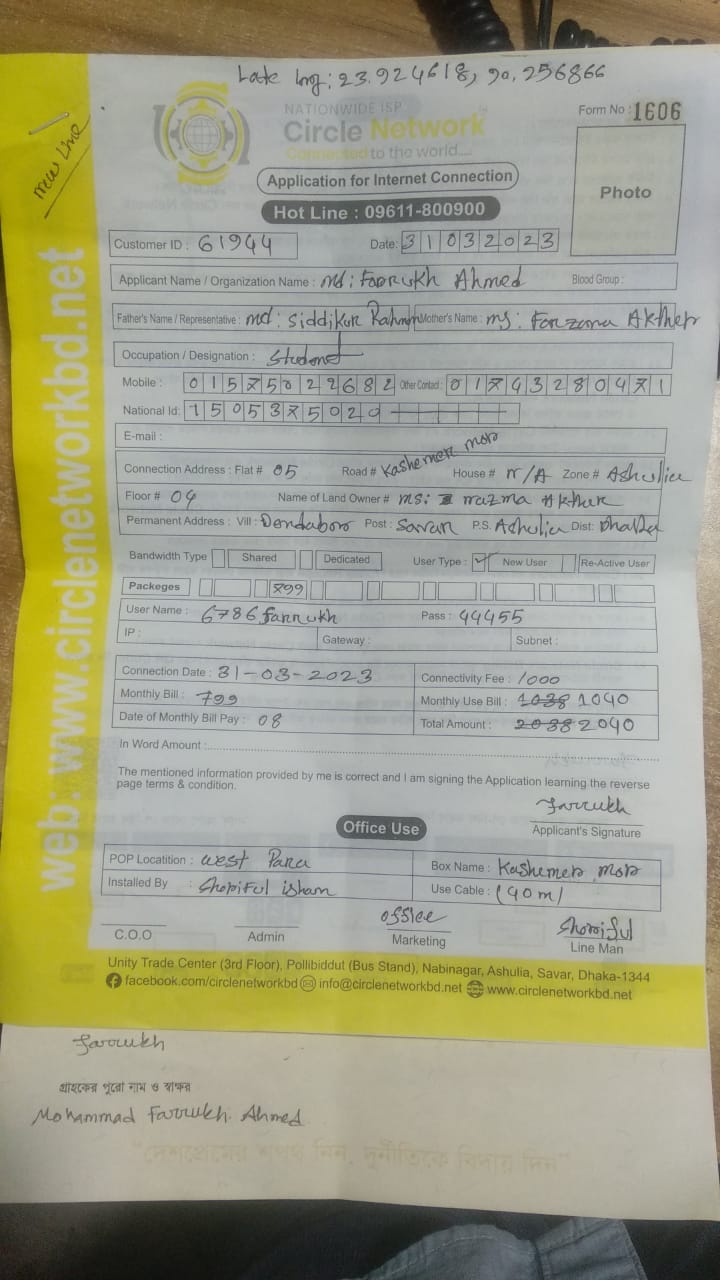 Late lng: 23.924618, 90.256866
new line
NATIONWIDE ISP
Circle Network
Connected to the world....
Form No : 1606
Photo
Application for Internet Connection
Hot Line : 09611-800900
Customer ID : 61944
Date: 31032023
Applicant Name / Organization Name : md: Farrukh Ahmed Blood Group :
Father's Name / Representative : md: Siddikur Rahman Mother's Name : ms: Farzana Akther
Occupation / Designation : Student
Mobile : 01575022682 Other Contact : 01743280471
National Id: 1505375020
E-mail :
Connection Address : Flat # 05 Road # Kashemer mor House # N/A Zone # Ashulia
Floor # 04 Name of Land Owner # ms: nazma Akther
Permanent Address : Vill : Dendaboro Post : Savar P.S. Ashulia Dist: Dhaka
Bandwidth Type Shared Dedicated User Type : ✓ New User Re-Active User
Packeges 799
User Name : 6786farrukh Pass : 44455
IP : Gateway : Subnet :
Connection Date : 31-03-2023 Connectivity Fee : 1000
Monthly Bill : 799 Monthly Use Bill : 1038 1040
Date of Monthly Bill Pay : 08 Total Amount : 2038 2040
In Word Amount :
The mentioned information provided by me is correct and I am signing the Application learning the reverse
page terms & condition.
Farrukh
Applicant's Signature
Office Use
POP Locatition : west Para Box Name : Kashemer mor
Installed By : Shoriful islam Use Cable : (90m)
office Shoriful
C.O.O Admin Marketing Line Man
Unity Trade Center (3rd Floor), Pollibiddut (Bus Stand), Nabinagar, Ashulia, Savar, Dhaka-1344
facebook.com/circlenetworkbd info@circlenetworkbd.net www.circlenetworkbd.net
web: www.circlenetworkbd.net
Farrukh
গ্রাহকের পুরো নাম ও স্বাক্ষর
Mohammad Farrukh Ahmed
"দেশপ্রেমের শপথ নিন, দুর্নীতিকে বিদায় দিন"